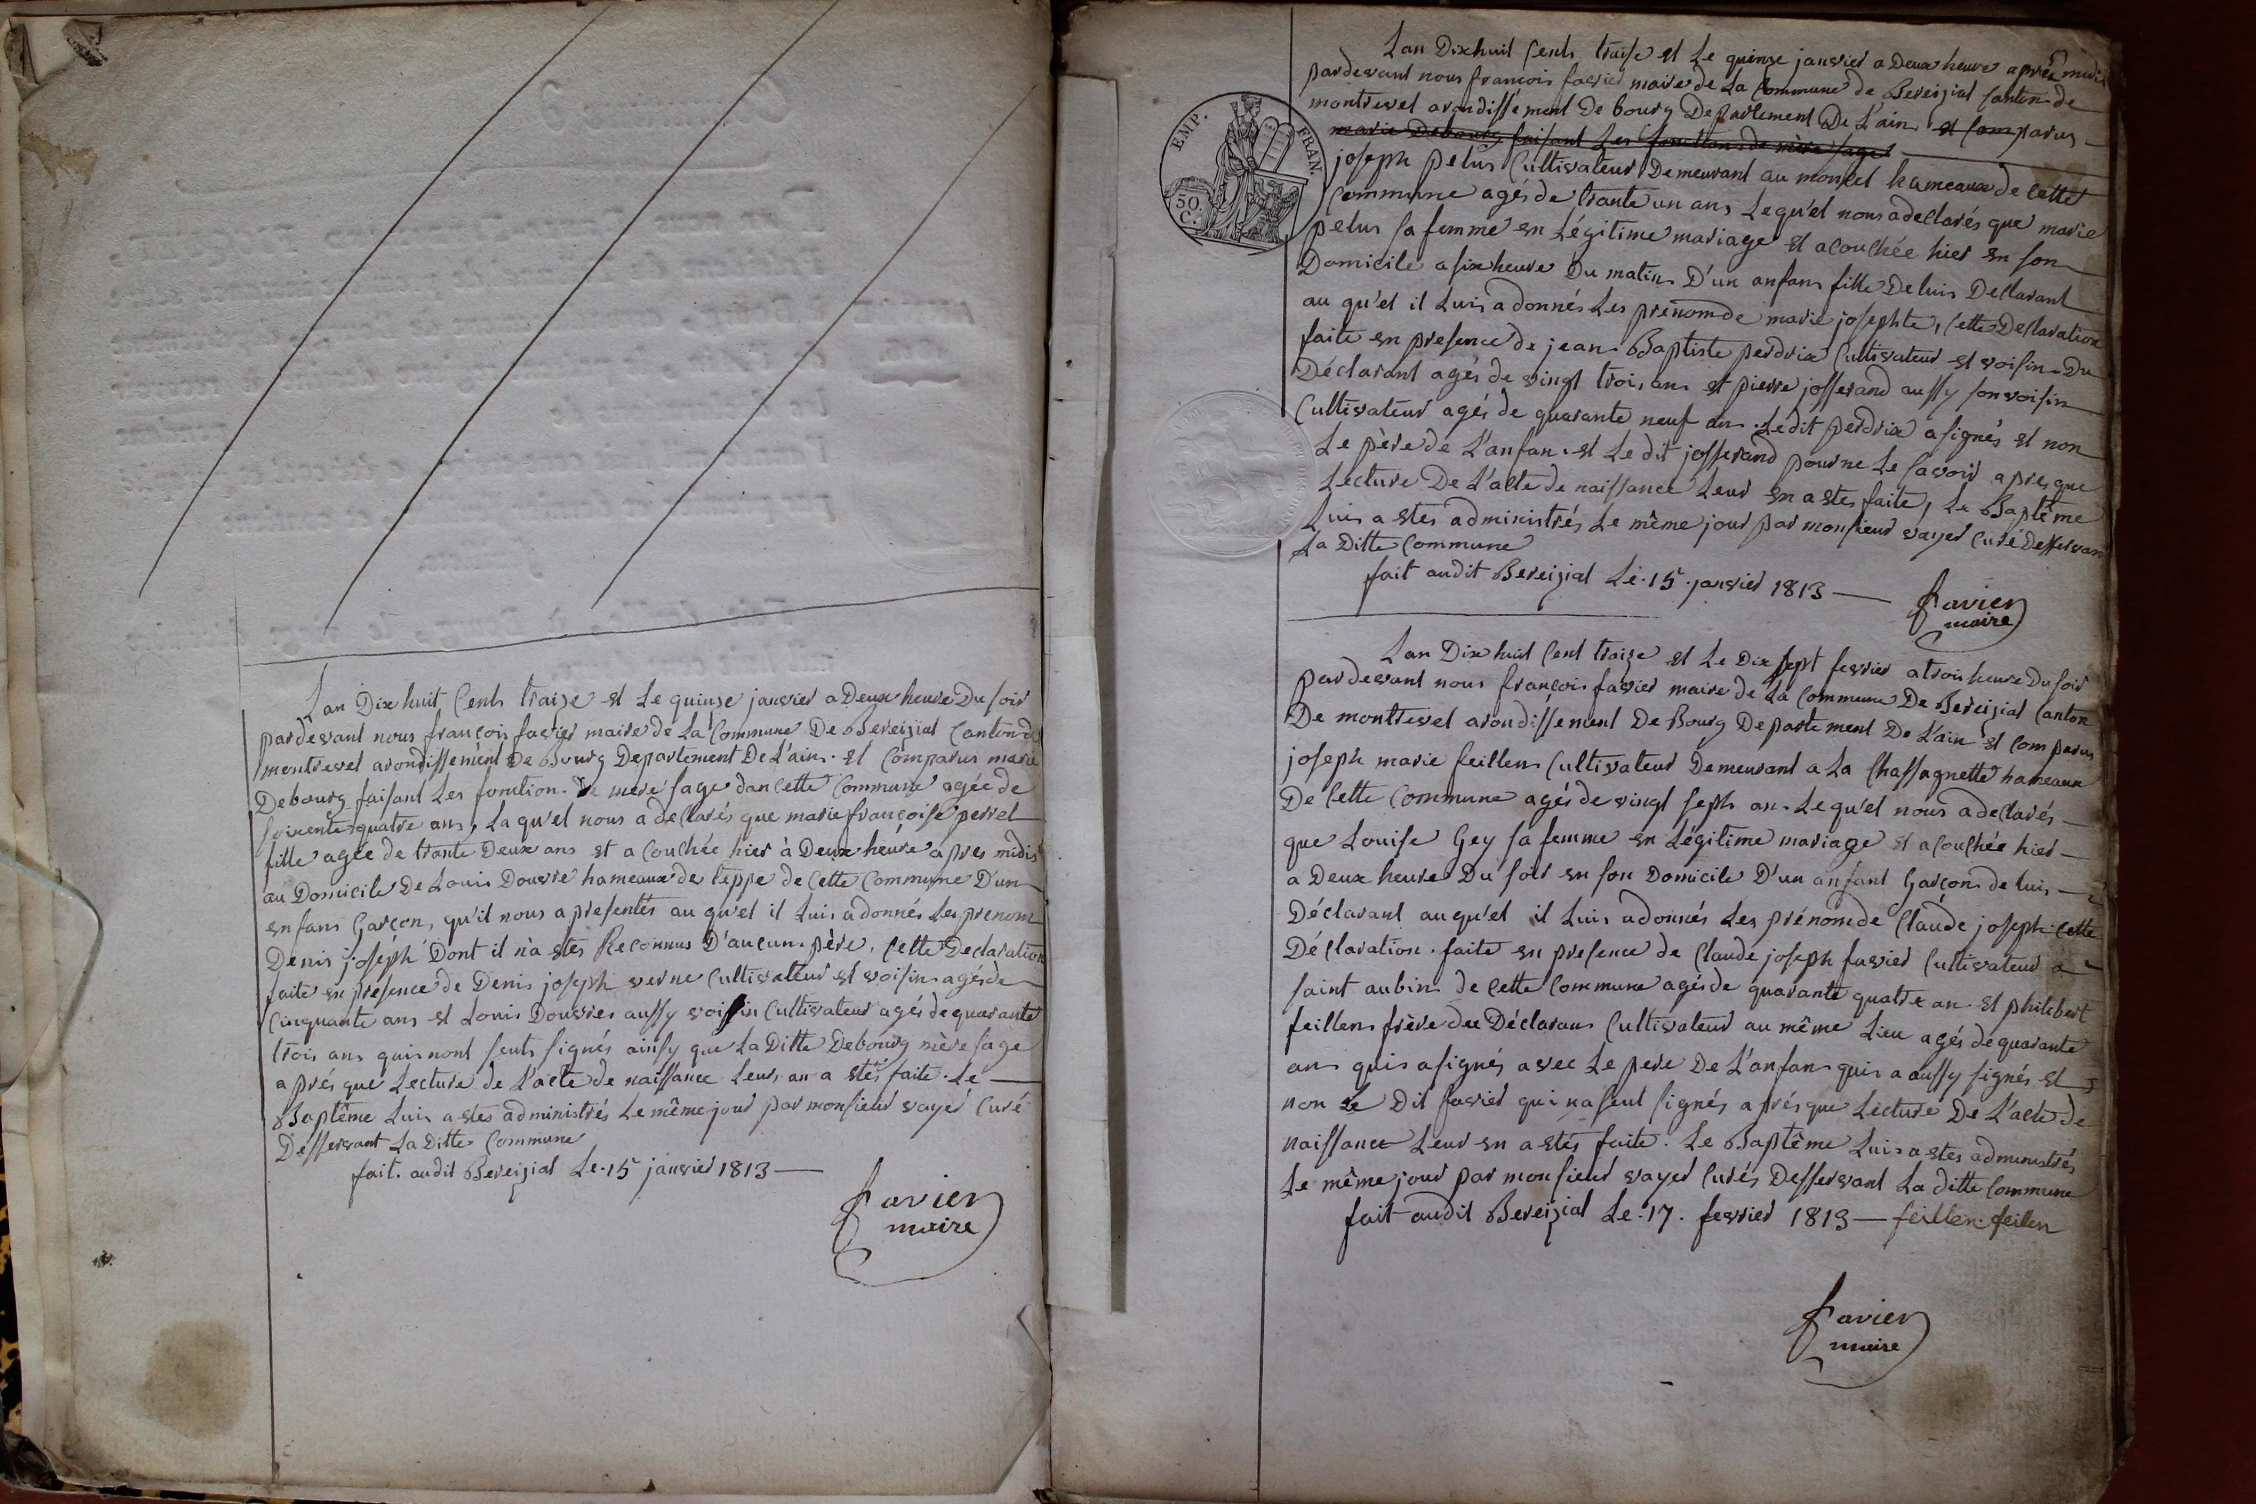 Lan Dix huit Cents traize et Le quinze janvier a Deux heure Du soir
pardevant nous françois favier maire de La Commune De Bereizial Canton de
montrevel arondissement De Bourg Departement De L'ain. et Comparus marie
Debourg faisant Les fonction De mere sage dan cette Commune agée de
soixente quatre ans, La qu'el nous a declarés que marie françoise perret
fille agée de trante Deux ans et a Couchée hier à Deux heure apres midis
au Domicile De Louis Douvre hameaux de teppe de Cette Commune D'un
enfans Garçon, qu'il nous a presentés au qu'el il Luis a donnés Les prenom
Denis joseph Dont il n'a etes Reconnus D'aucun père, Cette Declaration
faite en presence de Denis joseph verne Cultivateur et voisin agés de
Cinquante ans et Louis Douvres aussy voisin Cultivateur agés de quarante
trois ans quis nont seuts signés ainsy que La Ditte Debourg mère sage
aprés que Lecture de L'acte de naissance Leurs an a etés faite. Le
Baptême Luis a etes administrés Le même jour par monsieur vayer Curé
Desservant La Ditte Commune
fait. audit Bereizial Le. 15 janvier 1813
favier
maire
EMP. FRAN.
50 C.
Lan Dix huit Cents traise et Le quinze janvier a Deux heure aprés midis
pardevant nous françois favier maire de La Commune de Bereizial Canton de
montrevel arondissement De bourg Departement De L'ain et Comparus
marie Debourg faisant Les fonctions de mère sage
joseph pelus Cultivateur Demeurant au montet hameaux de Cette
Commune agés de trante un ans Lequ'el nous a declarés que marie
pelus sa femme en Légitime mariage et a Couchée hier en son
Domicile a six heure Du matin D'un anfans fille De luis Declarant
au qu'el il Luis a donnés Les prenom de marie josephte, Cette Declaration
faite en presence de jean Baptiste perdrix Cultivateur et voisin Du
Déclarant agés de vingt trois ans et pierre josserand aussy son voisin
Cultivateur agés de quarante neuf an. Ledit perdrix a signés et non
Le père de L'anfan. et Le dit josserand pour ne Le savoir apres que
Lecture De L'acte de naissance Leur en a etes faite, Le Baptême
Luis a etes administrés Le même jour par monsieur vayer Curé Desservan
La Ditte Commune
fait audit Bereizial Le. 15. janvier 1813
favier
maire
Lan Dix huit Cent traize et Le Dix sept fevrier a trois heure Du soir
par devant nous françois favier maire de La Commune De Bereizial Canton
De montrevel arondissement De Bourg Departement De L'ain et Comparus
joseph marie feillens Cultivateur Demeurant a La Chassagnette hameaux
De Cette Commune agés de vingt seph an. Lequ'el nous a declarés
que Louise Gey sa femme en Légitime mariage et a Couchée hier
a Deux heures Du soir en son Domicile D'un anfant Garçon de luis
Déclarant auqu'el il Luis a donnés Les prénom de Claude joseph Cette
Déclaration. faite en presence de Claude joseph favier Cultivateur a
saint aubin de Cette Commune agés de quarante quatre an. et philebert
feillens frère du Déclarans Cultivateur au même Lieu agés de quarante
ans quis a signés avec Le pere De L'anfan quis a aussy signés et
non Le Dit favier qui na seut signés aprés que Lecture De L'acte de
naissance Leur en a etés faite. Le Baptême Luis a etes administrés
Le même jour par monsieur vayer Curés Desservant La ditte Commune
fait audit Bereizial Le. 17. fevrier 1813 feillen feilen
favier
maire